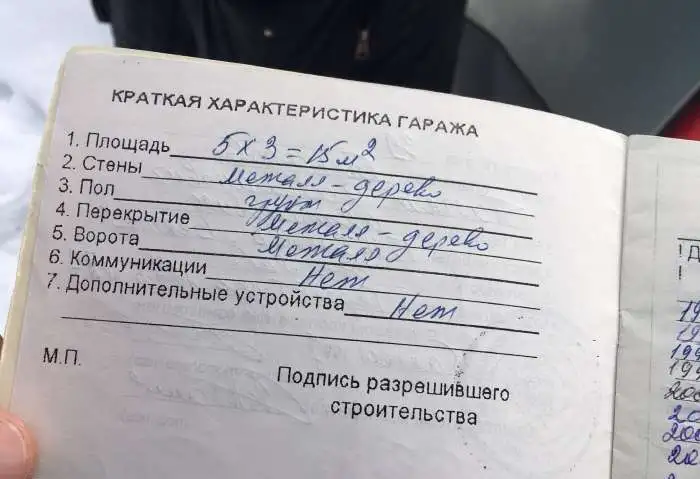 КРАТКАЯ ХАРАКТЕРИСТИКА ГАРАЖА
1. Площадь 5 х 3 = 15 м²
2. Стены металл - дерево
3. Пол грунт
4. Перекрытие металл - дерево
5. Ворота металл
6. Коммуникации Нет
7. Дополнительные устройства Нет
М.П.
Подпись разрешившего
строительства
! Д
!
19
19
199
199
200
20
200
20